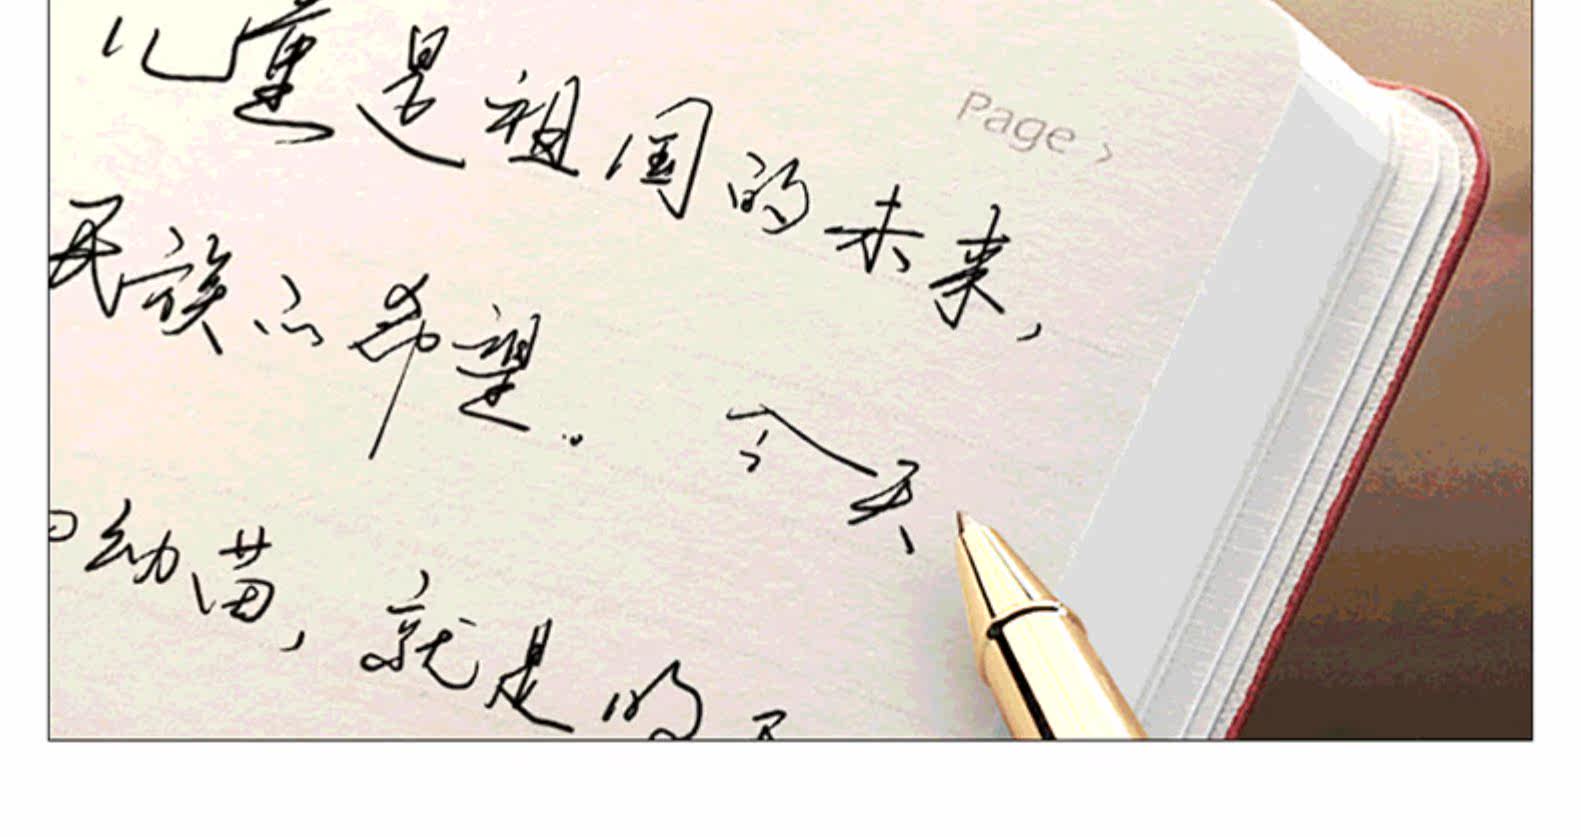 儿童是祖国的未来，
Page >
民族的希望。今天
幼苗，就是的